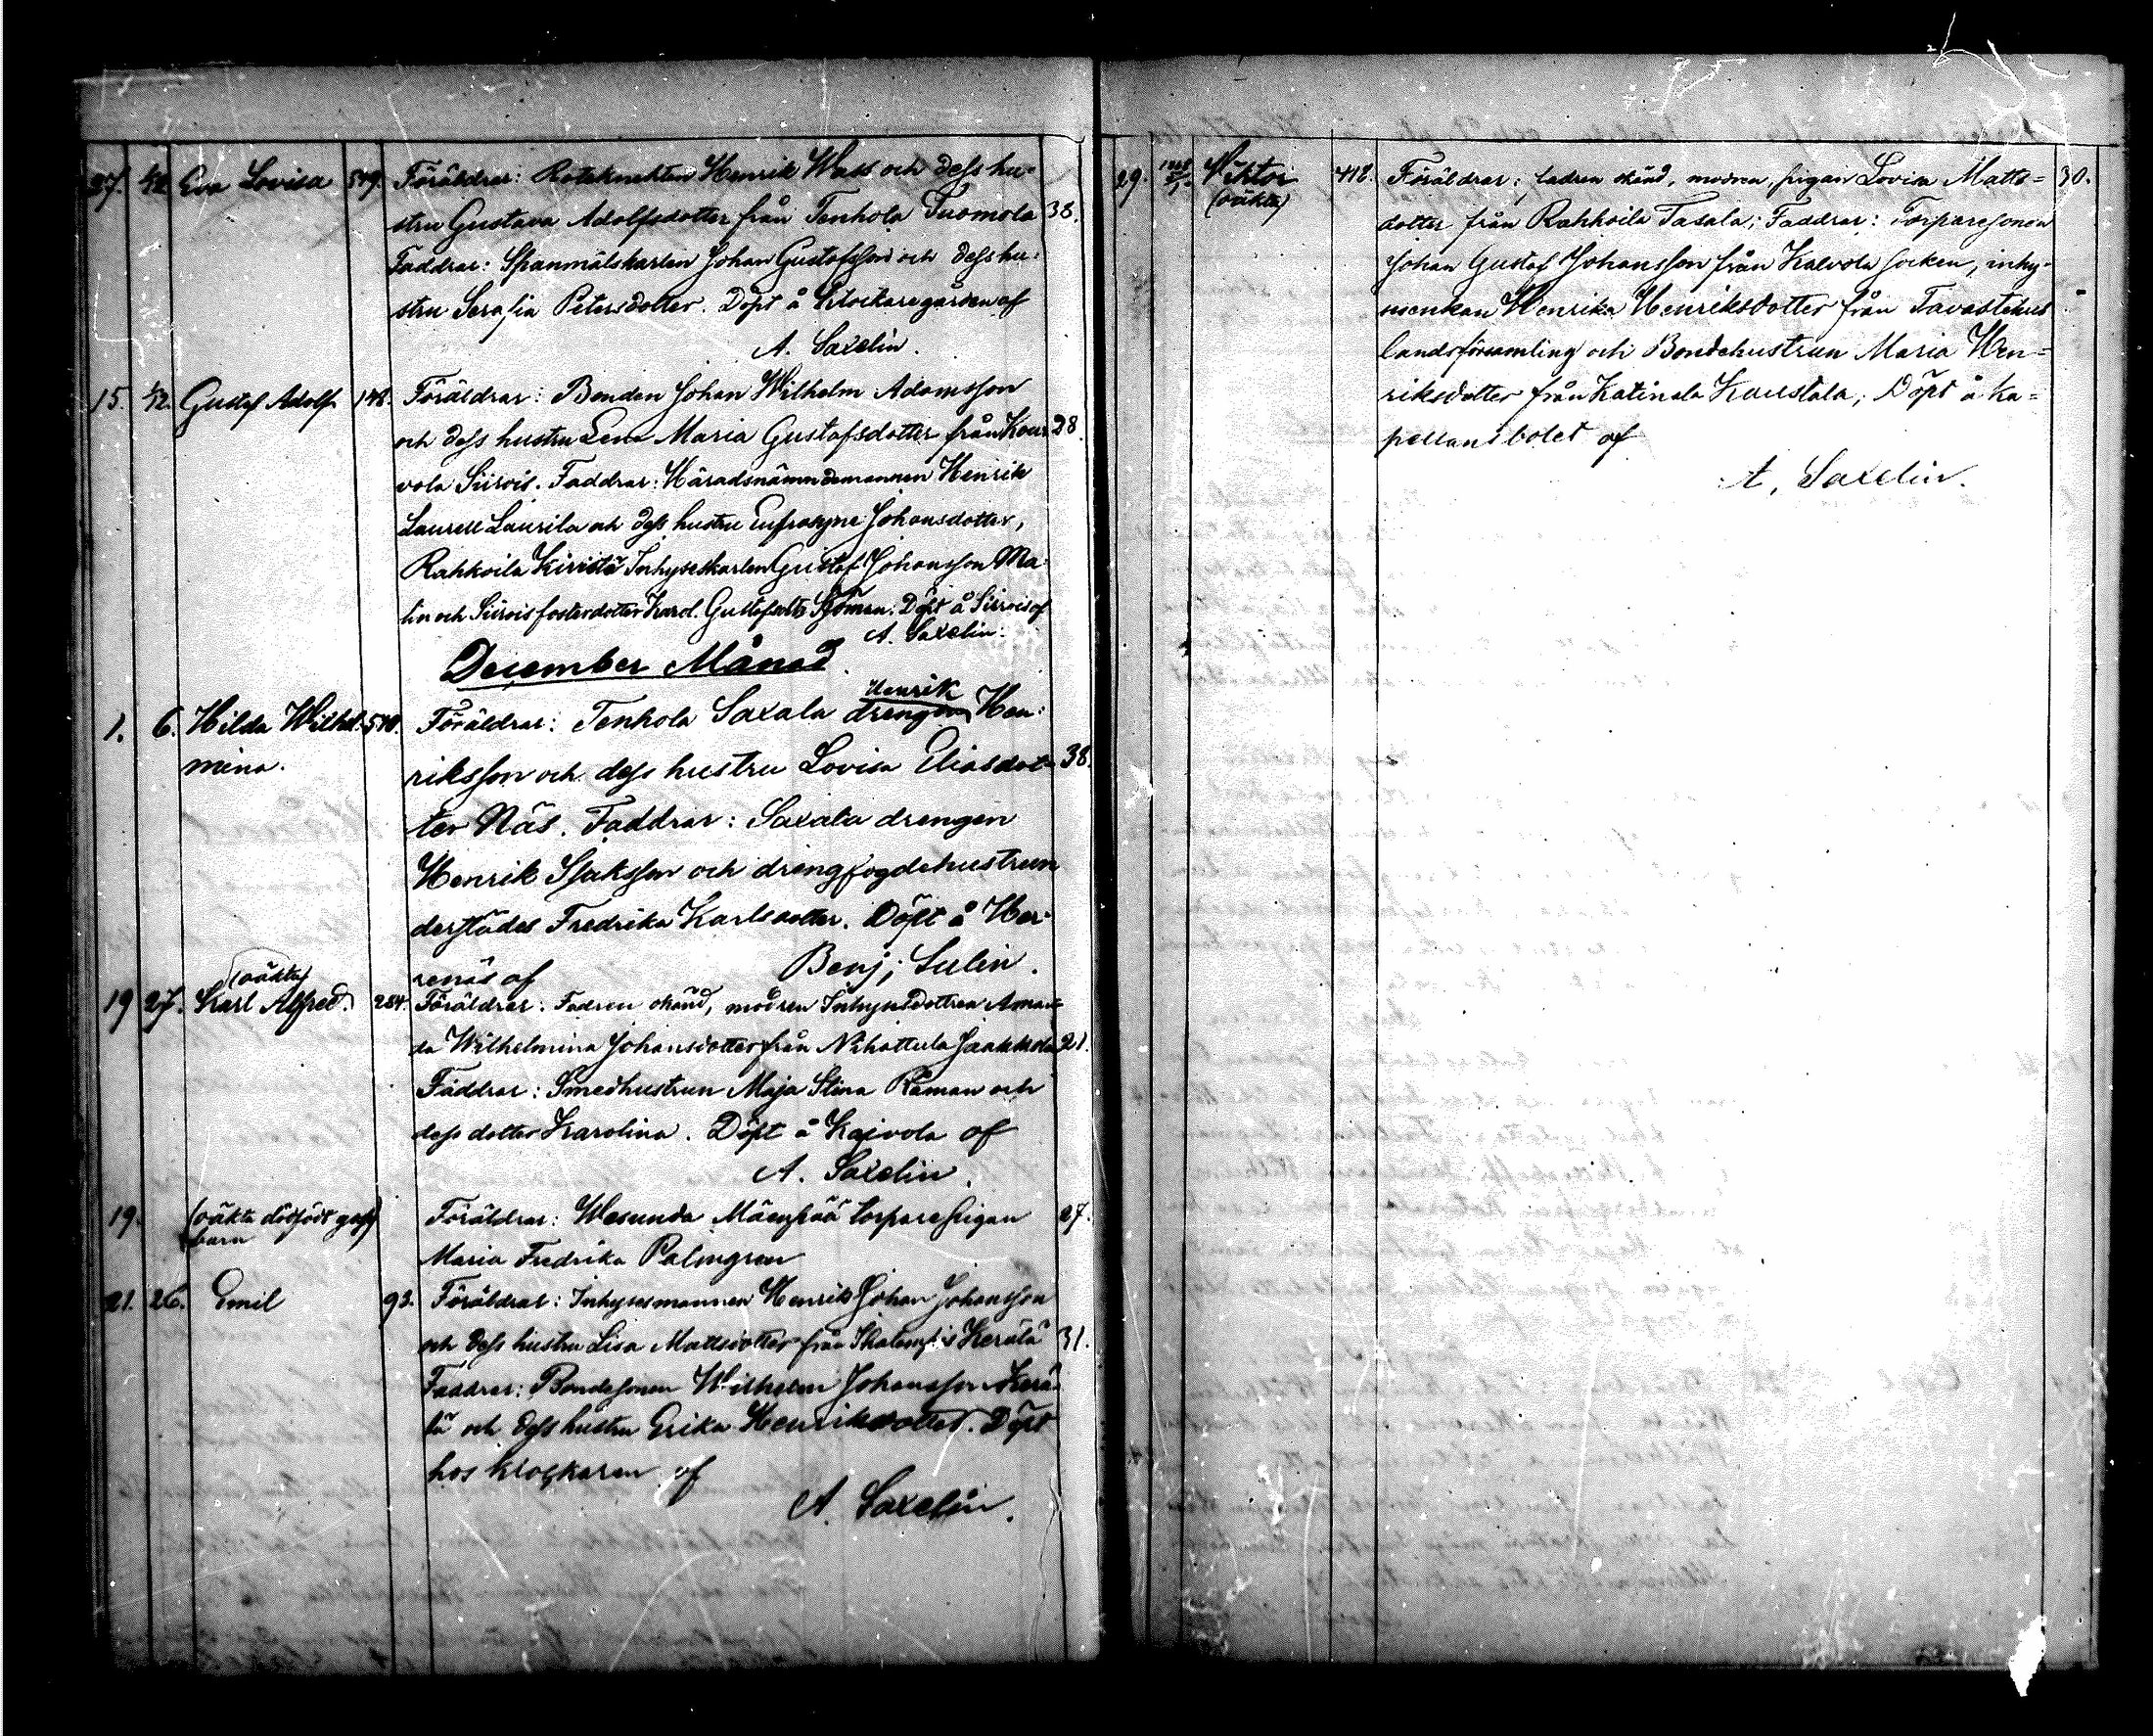 27. 1/12 Eva Lovisa 579. Föräldrar: Roteknekten Henrik Wass och dess hu-
stru Gustava Adolfsdotter från Tenhola Tuomola 38.
Faddrar: Spanmålskarlen Johan Gustafsson och dess hu-
stru Serafia Petersdotter. Döpt å Klockaregården af
A. Saxelin.
15. 1/12. Gustaf Adolf 148. Föräldrar: Bonden Johan Wilhelm Adamsson
och dess hustru Lena Maria Gustafsdotter från Kou- 28.
vola Siirois. Faddrar: Häradsnämndemannen Henrik
Laurell Laurila och dess hustru Eufrosyne Johansdotter,
Rahkoila Kivistö Inhyseskarlen Gustaf Johansson Ma-
lin och Siirois fosterdotter Karol. Gustafsdtr Sjöman. Döpt å Siirois af
A. Saxelin.
December Månad
Henrik
1. 6. Hilda Wilhel- 510. Föräldrar: Tenhola Saxala drengen Hen-
mina. riksson och dess hustru Lovisa Eliasdot- 38.
ter Näs. Faddrar: Saxala drengen
Henrik Isaksson och drengfogdehustrun
derstädes Fredrika Karlsdotter. Döpt å Her-
renäs af Benj; Sulin.
(oäkta)
19 27. Karl Alfred. 284. Föräldrar: Fadren okänd, modren Inhysesdottren Aman-
da Wilhelmina Johansdotter från Nihattula Jaakkola 21.
Faddrar: Smedhustrun Maja Stina Råman och
dess dotter Karolina. Döpt å Kaivola af
A. Saxelin.
19. (oäkta dödfödt goss) Föräldrar: Wesunda Mäenpää torparepigan 27.
barn Maria Fredrika Palmgren
21. 26. Emil 93. Föräldrar: Inhysesmannen Henrik Johan Johansson
och dess hustru Lisa Mattsdotter från Kerälä 31.
Faddrar: Bondesonen Wilhelm Johansson Kerä-
lä och dess hustru Erika Henriksdotter. Döpt
hos klockaren af
A. Saxelin.
29. Viktor 418. Föräldrar: fadren okänd, modren, pigan Lovisa Matts- 30.
(oäkta) dotter från Rahkoila Tasala; Faddrar: Torparesonen
Johan Gustaf Johansson från Kalvola socken, inhy-
senkan Henrika Henriksdotter från Tavastehus
landsförsamling och Bondehustrun Maria Hen-
riksdotter från Katinala Koustala; Döpt å ka-
pellansbolet af
A. Saxelin.